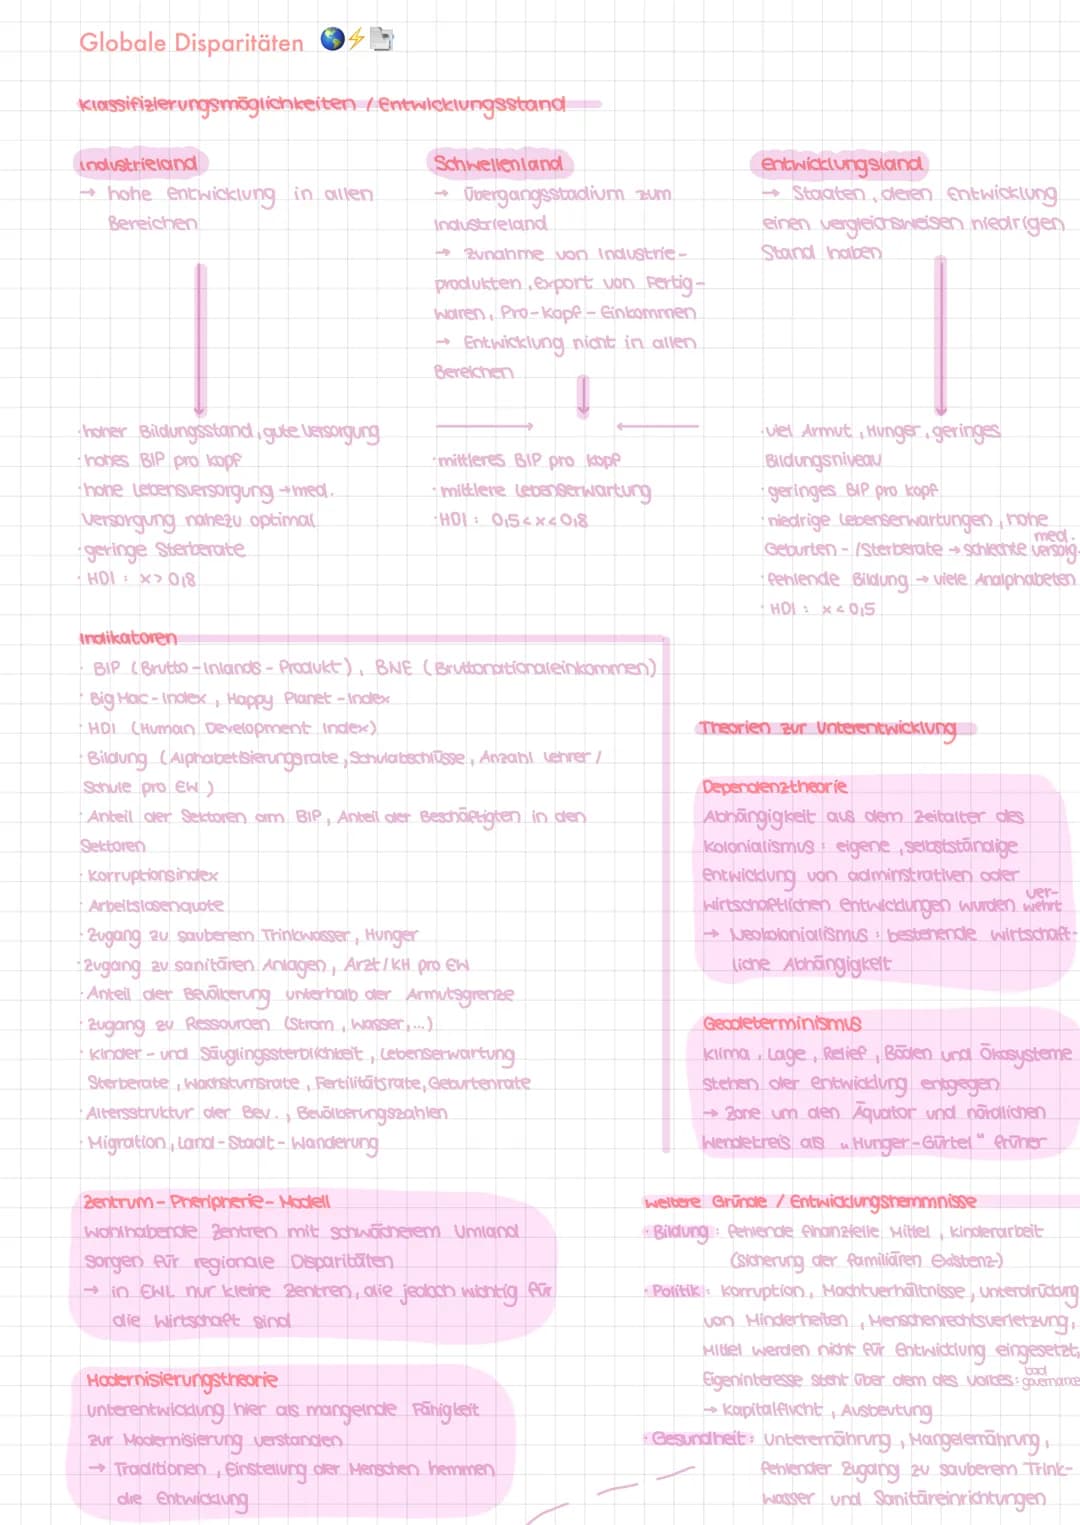 Globale Disparitäten
Klassifizierungsmöglichkeiten / Entwicklungsstand
Industrieland
→ hohe Entwicklung in allen
Bereichen
Schwellenland
→ Übergangsstadium zum
Industrieland
→ Zunahme von Industrie-
produkten, Export von Fertig-
waren, Pro-Kopf-Einkommen
→ Entwicklung nicht in allen
Bereichen
Entwicklungsland
→ Staaten, deren Entwicklung
einen vergleichsweisen niedrigen
Stand haben
· hoher Bildungsstand, gute Versorgung
· hohes BIP pro Kopf
· hohe Lebensversorgung → med.
Versorgung nahezu optimal
· geringe Sterberate
· HDI : x > 0,8
· mittleres BIP pro Kopf
· mittlere Lebenserwartung
· HDI : 0,5 < x < 0,8
· viel Armut, Hunger, geringes
Bildungsniveau
· geringes BIP pro Kopf
· niedrige Lebenserwartungen, hohe
Geburten- /Sterberate → schlechte med. Versorg.
· fehlende Bildung → viele Analphabeten
· HDI : x < 0,5
Indikatoren
· BIP (Brutto-Inlands-Produkt), BNE (Bruttonationaleinkommen)
· Big Mac-Index, Happy Planet-Index
· HDI (Human Development Index)
· Bildung (Alphabetisierungsrate, Schulabschlüsse, Anzahl Lehrer /
Schule pro EW)
· Anteil der Sektoren am BIP, Anteil der Beschäftigten in den
Sektoren
· Korruptionsindex
· Arbeitslosenquote
· Zugang zu sauberem Trinkwasser, Hunger
· Zugang zu sanitären Anlagen, Arzt/KH pro EW
· Anteil der Bevölkerung unterhalb der Armutsgrenze
· Zugang zu Ressourcen (Strom, Wasser,...)
· Kinder- und Säuglingssterblichkeit, Lebenserwartung
Sterberate, Wachstumsrate, Fertilitätsrate, Geburtenrate
· Altersstruktur der Bev., Bevölkerungszahlen
· Migration, Land-Stadt-Wanderung
Theorien zur Unterentwicklung
Dependenztheorie
Abhängigkeit aus dem Zeitalter des
Kolonialismus : eigene, selbstständige
Entwicklung von adminstrativen oder
wirtschaftlichen Entwicklungen wurden ver-
wehrt
→ Neokolonialismus : bestehende wirtschaft-
liche Abhängigkeit
Geodeterminismus
Klima, Lage, Relief, Böden und Ökosysteme
stehen der Entwicklung entgegen
→ Zone um den Äquator und nördlichen
Wendekreis als „Hunger-Gürtel" früher
Zentrum-Pheripherie-Modell
wohlhabende Zentren mit schwächerem Umland
sorgen für regionale Disparitäten
→ in EWL nur kleine Zentren, die jedoch wichtig für
die Wirtschaft sind
Modernisierungstheorie
Unterentwicklung hier als mangelnde Fähigkeit
zur Modernisierung verstanden
→ Traditionen, Einstellung der Menschen hemmen
die Entwicklung
weitere Gründe / Entwicklungshemmnisse
· Bildung : fehlende finanzielle Mittel, Kinderarbeit
(Sicherung der familiären Existenz)
· Politik : Korruption, Machtverhältnisse, Unterdrückung
von Minderheiten, Menschenrechtsverletzung,
Mittel werden nicht für Entwicklung eingesetzt,
Eigeninteresse steht über dem des Volkes : bad governance
→ Kapitalflucht, Ausbeutung
· Gesundheit : Unterernährung, Mangelernährung,
fehlender Zugang zu sauberem Trink-
wasser und Sanitäreinrichtungen